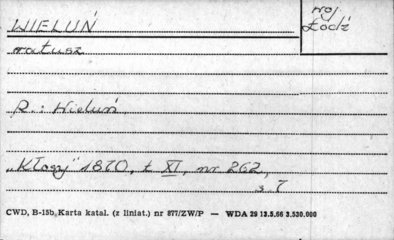 WIELUŃ
woj.
Łódź
ratusz
R.: Wieluń
„Kłosy" 1870, t XI, nr 262,
s. 7
CWD, B-15b, Karta katal. (z liniat.) nr 877/ZW/P — WDA 29 13.5.66 3.530.000